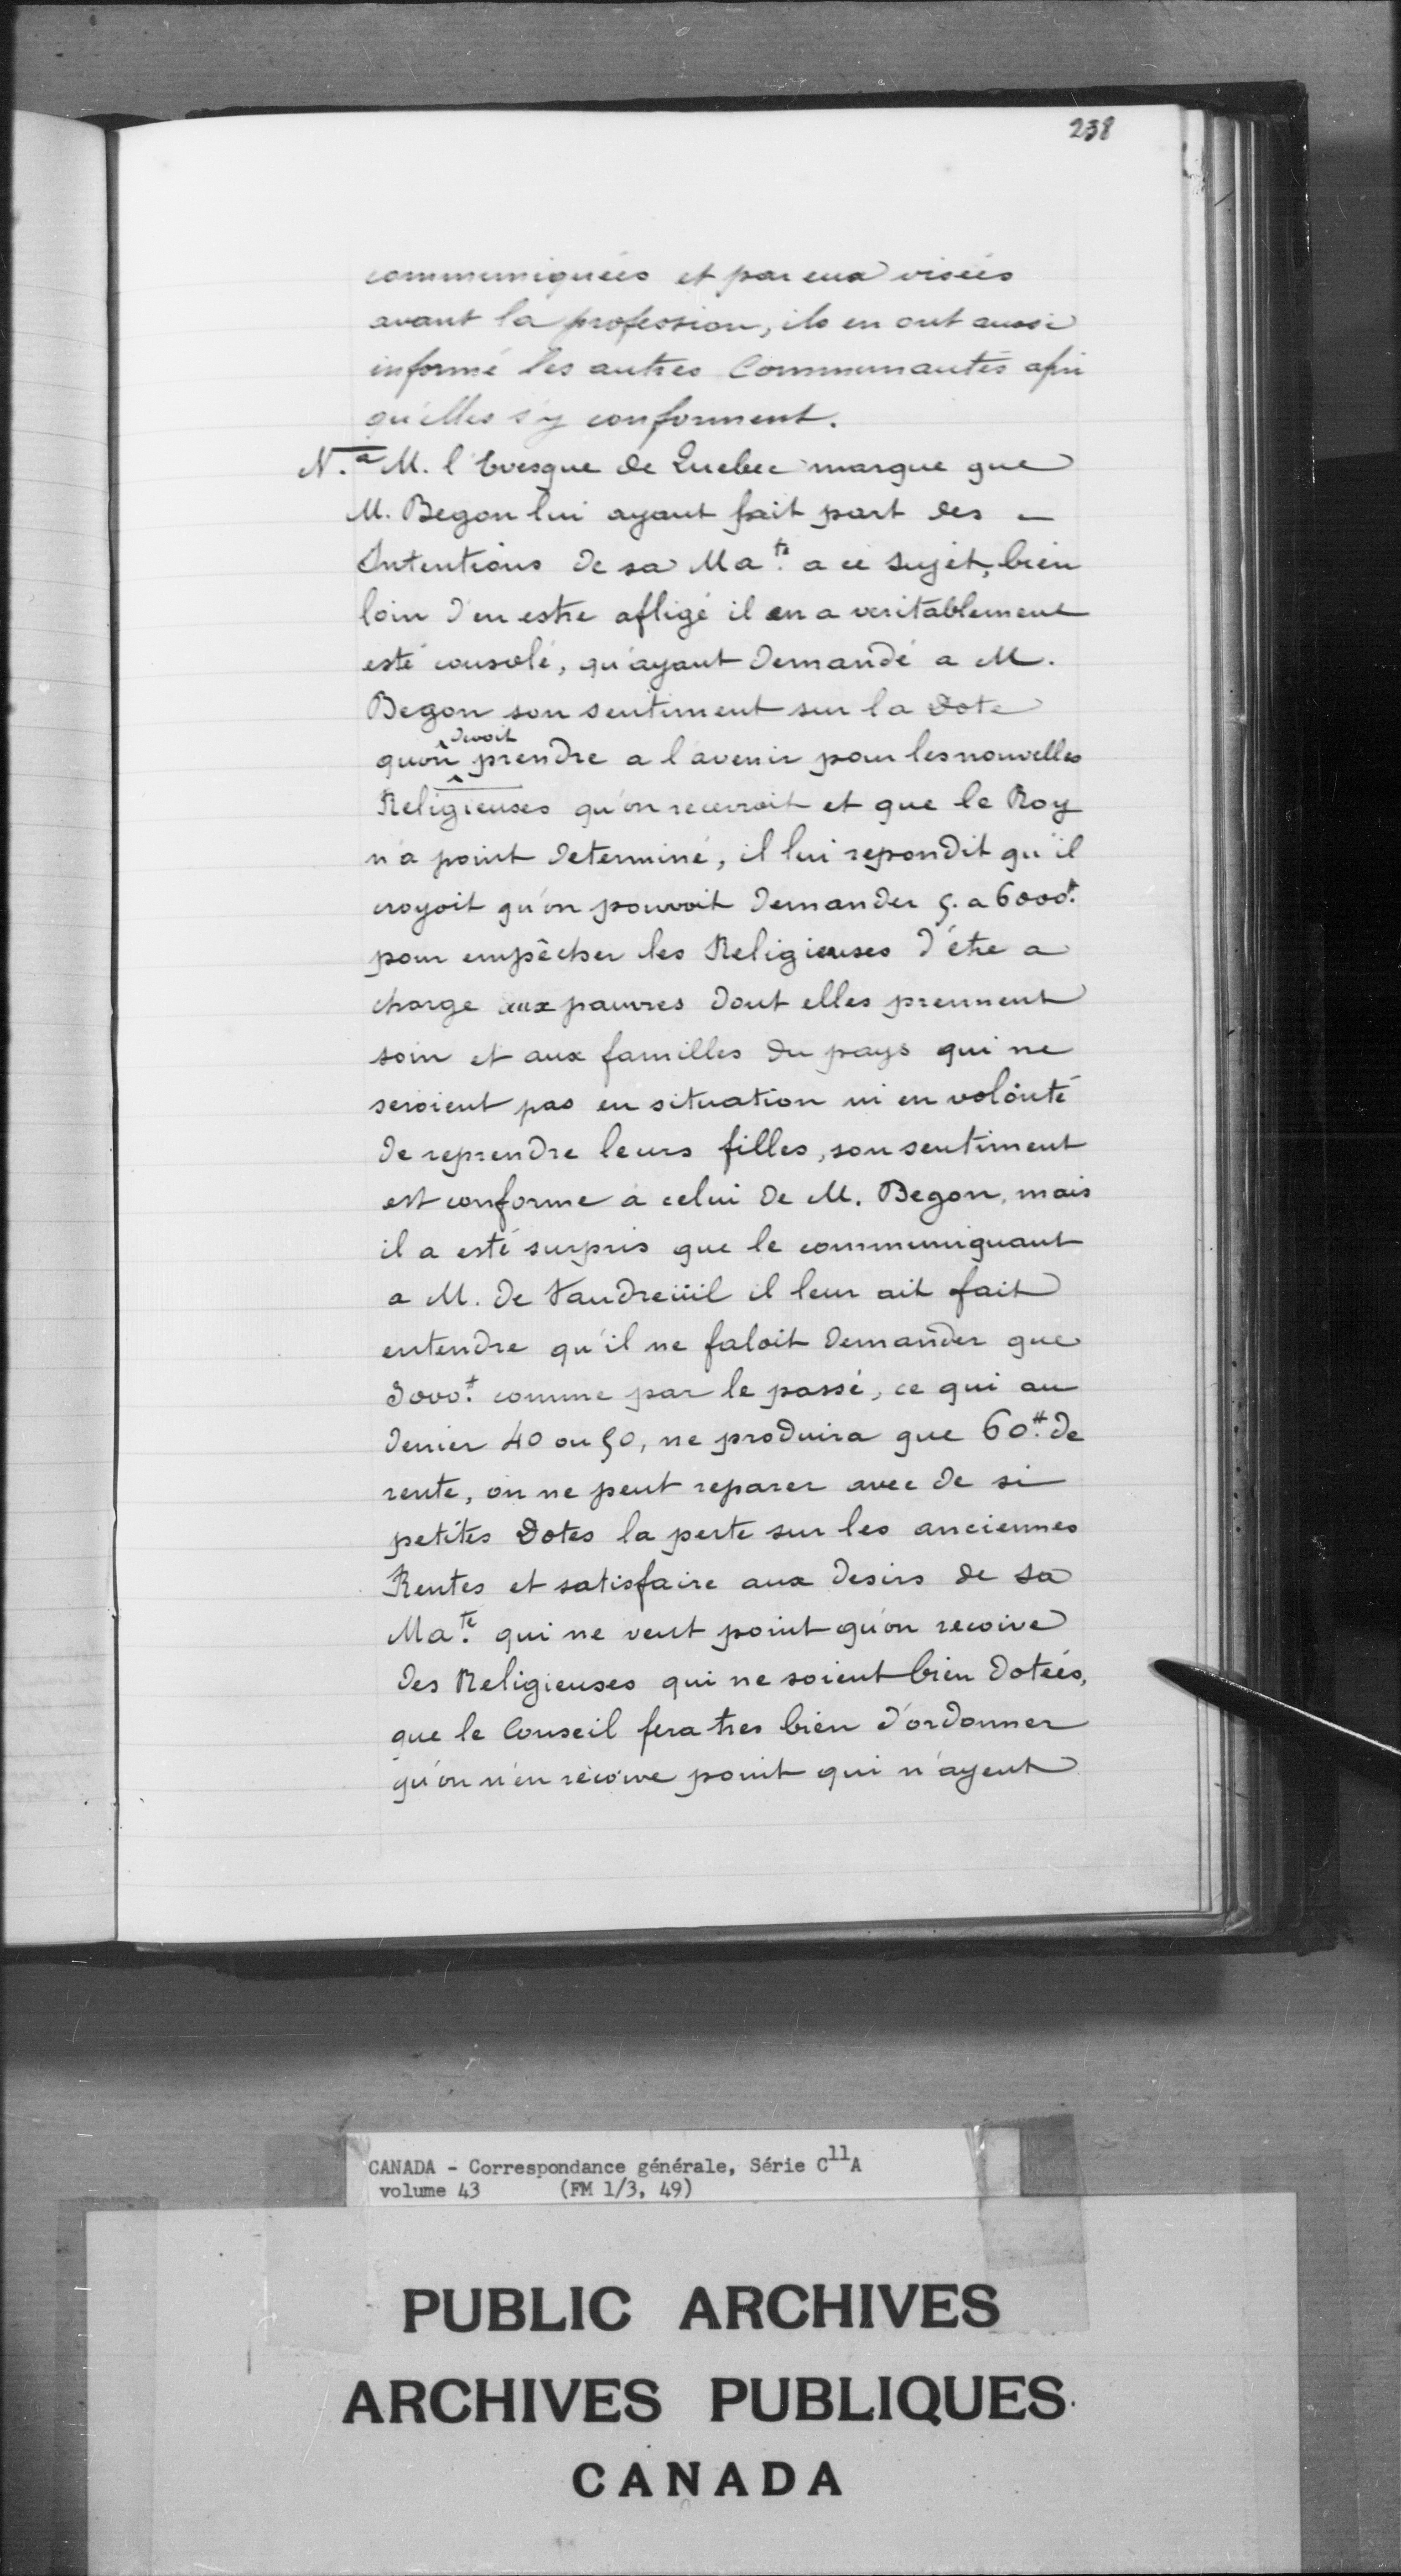 238
communiquées et par eux visées
avant la profession, ils en ont aussi
informé les autres Communautés afin
qu'elles s'y conforment.
N.ª M. l'Evesque de Quebec marque que
M. Begon lui ayant fait part des -
Intentions de sa Ma.té a ce sujet, bien
loin d'en estre afligé il en a veritablement
esté consolé, qu'ayant demandé a M.
Begon son sentiment sur la dote
devoit
qu'on prendre a l'avenir pour les nouvelles
Religieuses qu'on recevroit et que le Roy
n'a point determiné, il lui repondit qu'il
croyoit qu'on pouvoit demander 5. a 6000.ᵗ
pour empêcher les Religieuses d'être a
charge aux pauvres dont elles prennent
soin et aux familles du pays qui ne
seroient pas en situation ni en volonté
de reprendre leurs filles, son sentiment
est conforme a celui de M. Begon, mais
il a esté surpris que le communiquant
a M. de Vaudreüil il leur ait fait
entendre qu'il ne faloit demander que
3000.ᵗ comme par le passé, ce qui au
denier 40 ou 50, ne produira que 60.# de
rente, on ne peut reparer avec de si
petites dotes la perte sur les anciennes
Rentes et satisfaire aux desirs de sa
Ma.té qui ne veut point qu'on recoive
des Religieuses qui ne soient bien dotées,
que le Conseil fera tres bien d'ordonner
qu'on n'en recoive point qui n'ayent
CANADA - Correspondance générale, Série C11A
volume 43 (FM 1/3, 49)
PUBLIC ARCHIVES
ARCHIVES PUBLIQUES
CANADA